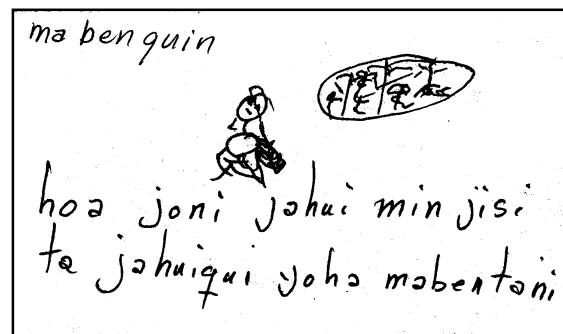 ma ben quin
hoa joni jahui min jisi
ta jahuiqui yoha mabentani